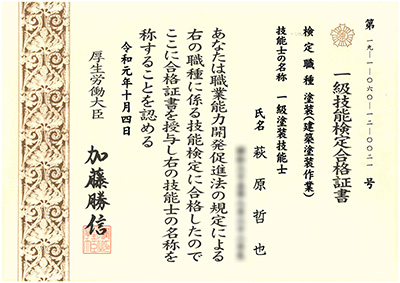 第一九-一-〇六〇-一二-〇〇二一号
一級技能検定合格証書
検定職種 塗装(建築塗装作業)
技能士の名称 一級塗装技能士
氏名 萩原哲也
あなたは職業能力開発促進法の規定による
右の職種に係る技能検定に合格したので
ここに合格証書を授与し右の技能士の名称を
称することを認める
令和元年十月四日
厚生労働大臣 加藤勝信